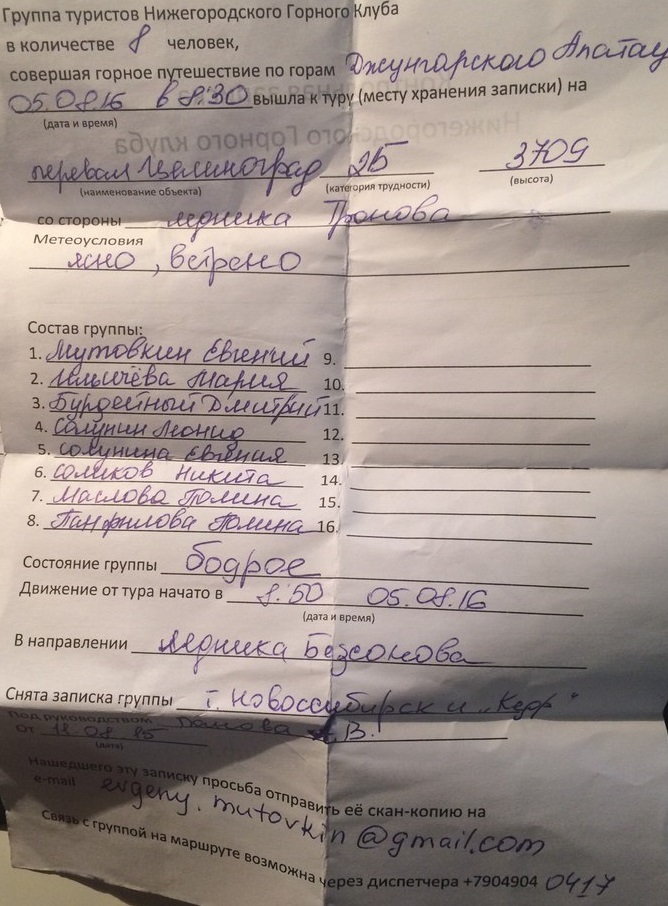 Группа туристов Нижегородского Горного Клуба
в количестве 8 человек,
совершая горное путешествие по горам Джунгарского Алатау
05.08.16 в 8:30 вышла к туру (месту хранения записки) на
(дата и время)
перевал Целиноград 2Б 3709
(наименование объекта) (категория трудности) (высота)
со стороны ледника Тронова
Метеоусловия
ясно, ветрено
Состав группы:
1. Мутовкин Евгений 9.
2. Мария 10.
3. Бурдейный Дмитрий 11.
4. Солунин Леонид 12.
5. Солунина Евгения 13.
6. Соликов Никита 14.
7. Маслова Полина 15.
8. Панфилова Полина 16.
Состояние группы бодрое
Движение от тура начато в 8:50 05.08.16
(дата и время)
В направлении ледника Безсонова
Снята записка группы г. Новоссибирск и "Кедр"
Под руководством В.
от 11.08.85
(дата)
Нашедшего эту записку просьба отправить её скан-копию на
e-mail evgeny.mutovkin@gmail.com
Связь с группой на маршруте возможна через диспетчера +7904904 0417